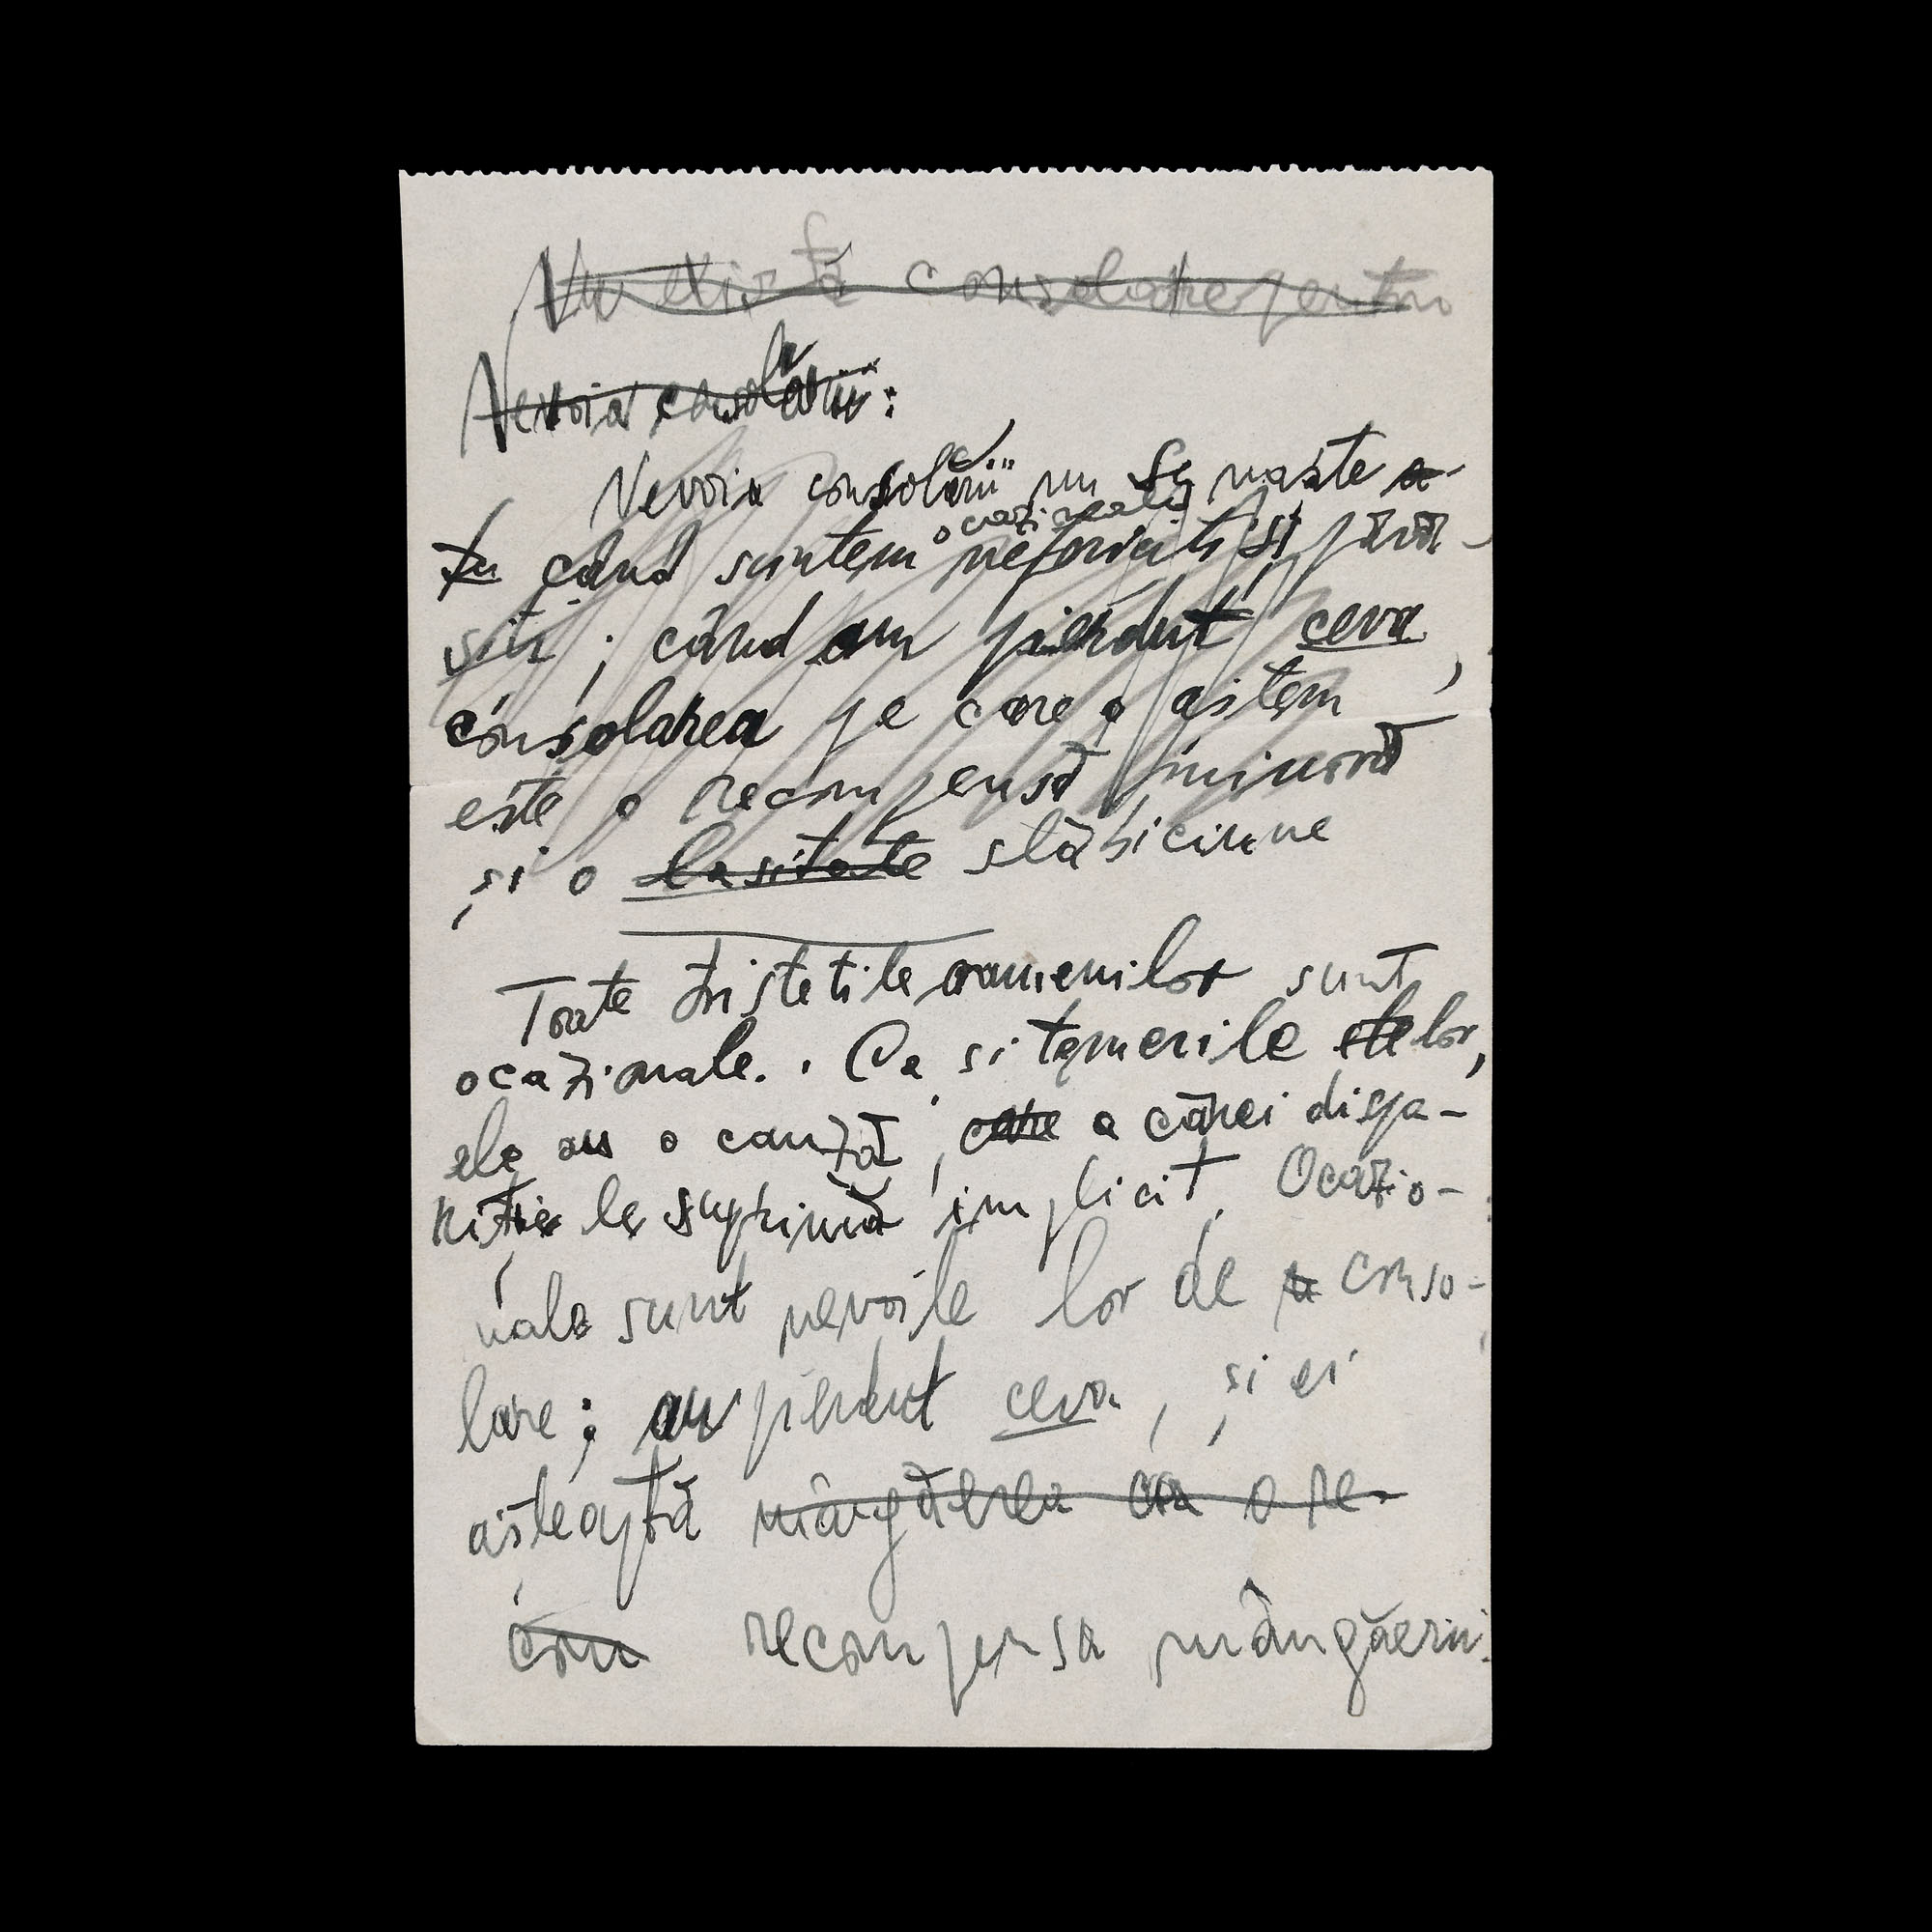 Nu există consolare pentru
Nevoia consolării:
Nevoia consolării nu se naște a-
tu când suntem ocazional nefericiți și pără-
siți; când am pierdut ceva,
consolarea pe care o aștem
este o recompensă minoră
și o lasitate slăbiciune
Toate tristețile oamenilor sunt
ocazionale. Ca și temerile ele lor,
ele au o cauză, care a cărei dispa-
riție le suprimă implicit. Ocazio-
nale sunt nevoile lor de a conso-
lare; au pierdut ceva, și ei
așteaptă mângâerea ca o re-
com recompensa mângâerii.